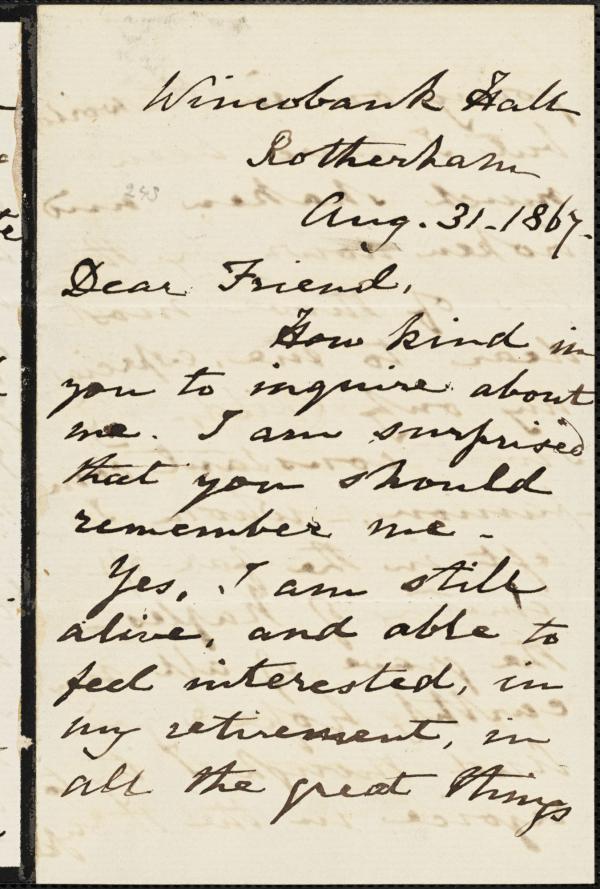 Wincobank Hall
Rotherham
243
Aug. 31. 1867.
Dear Friend,
How kind in
you to inquire about
me. I am surprised
that you should
remember me.
Yes, I am still
alive, and able to
feel interested, in
my retirement, in
all the great things